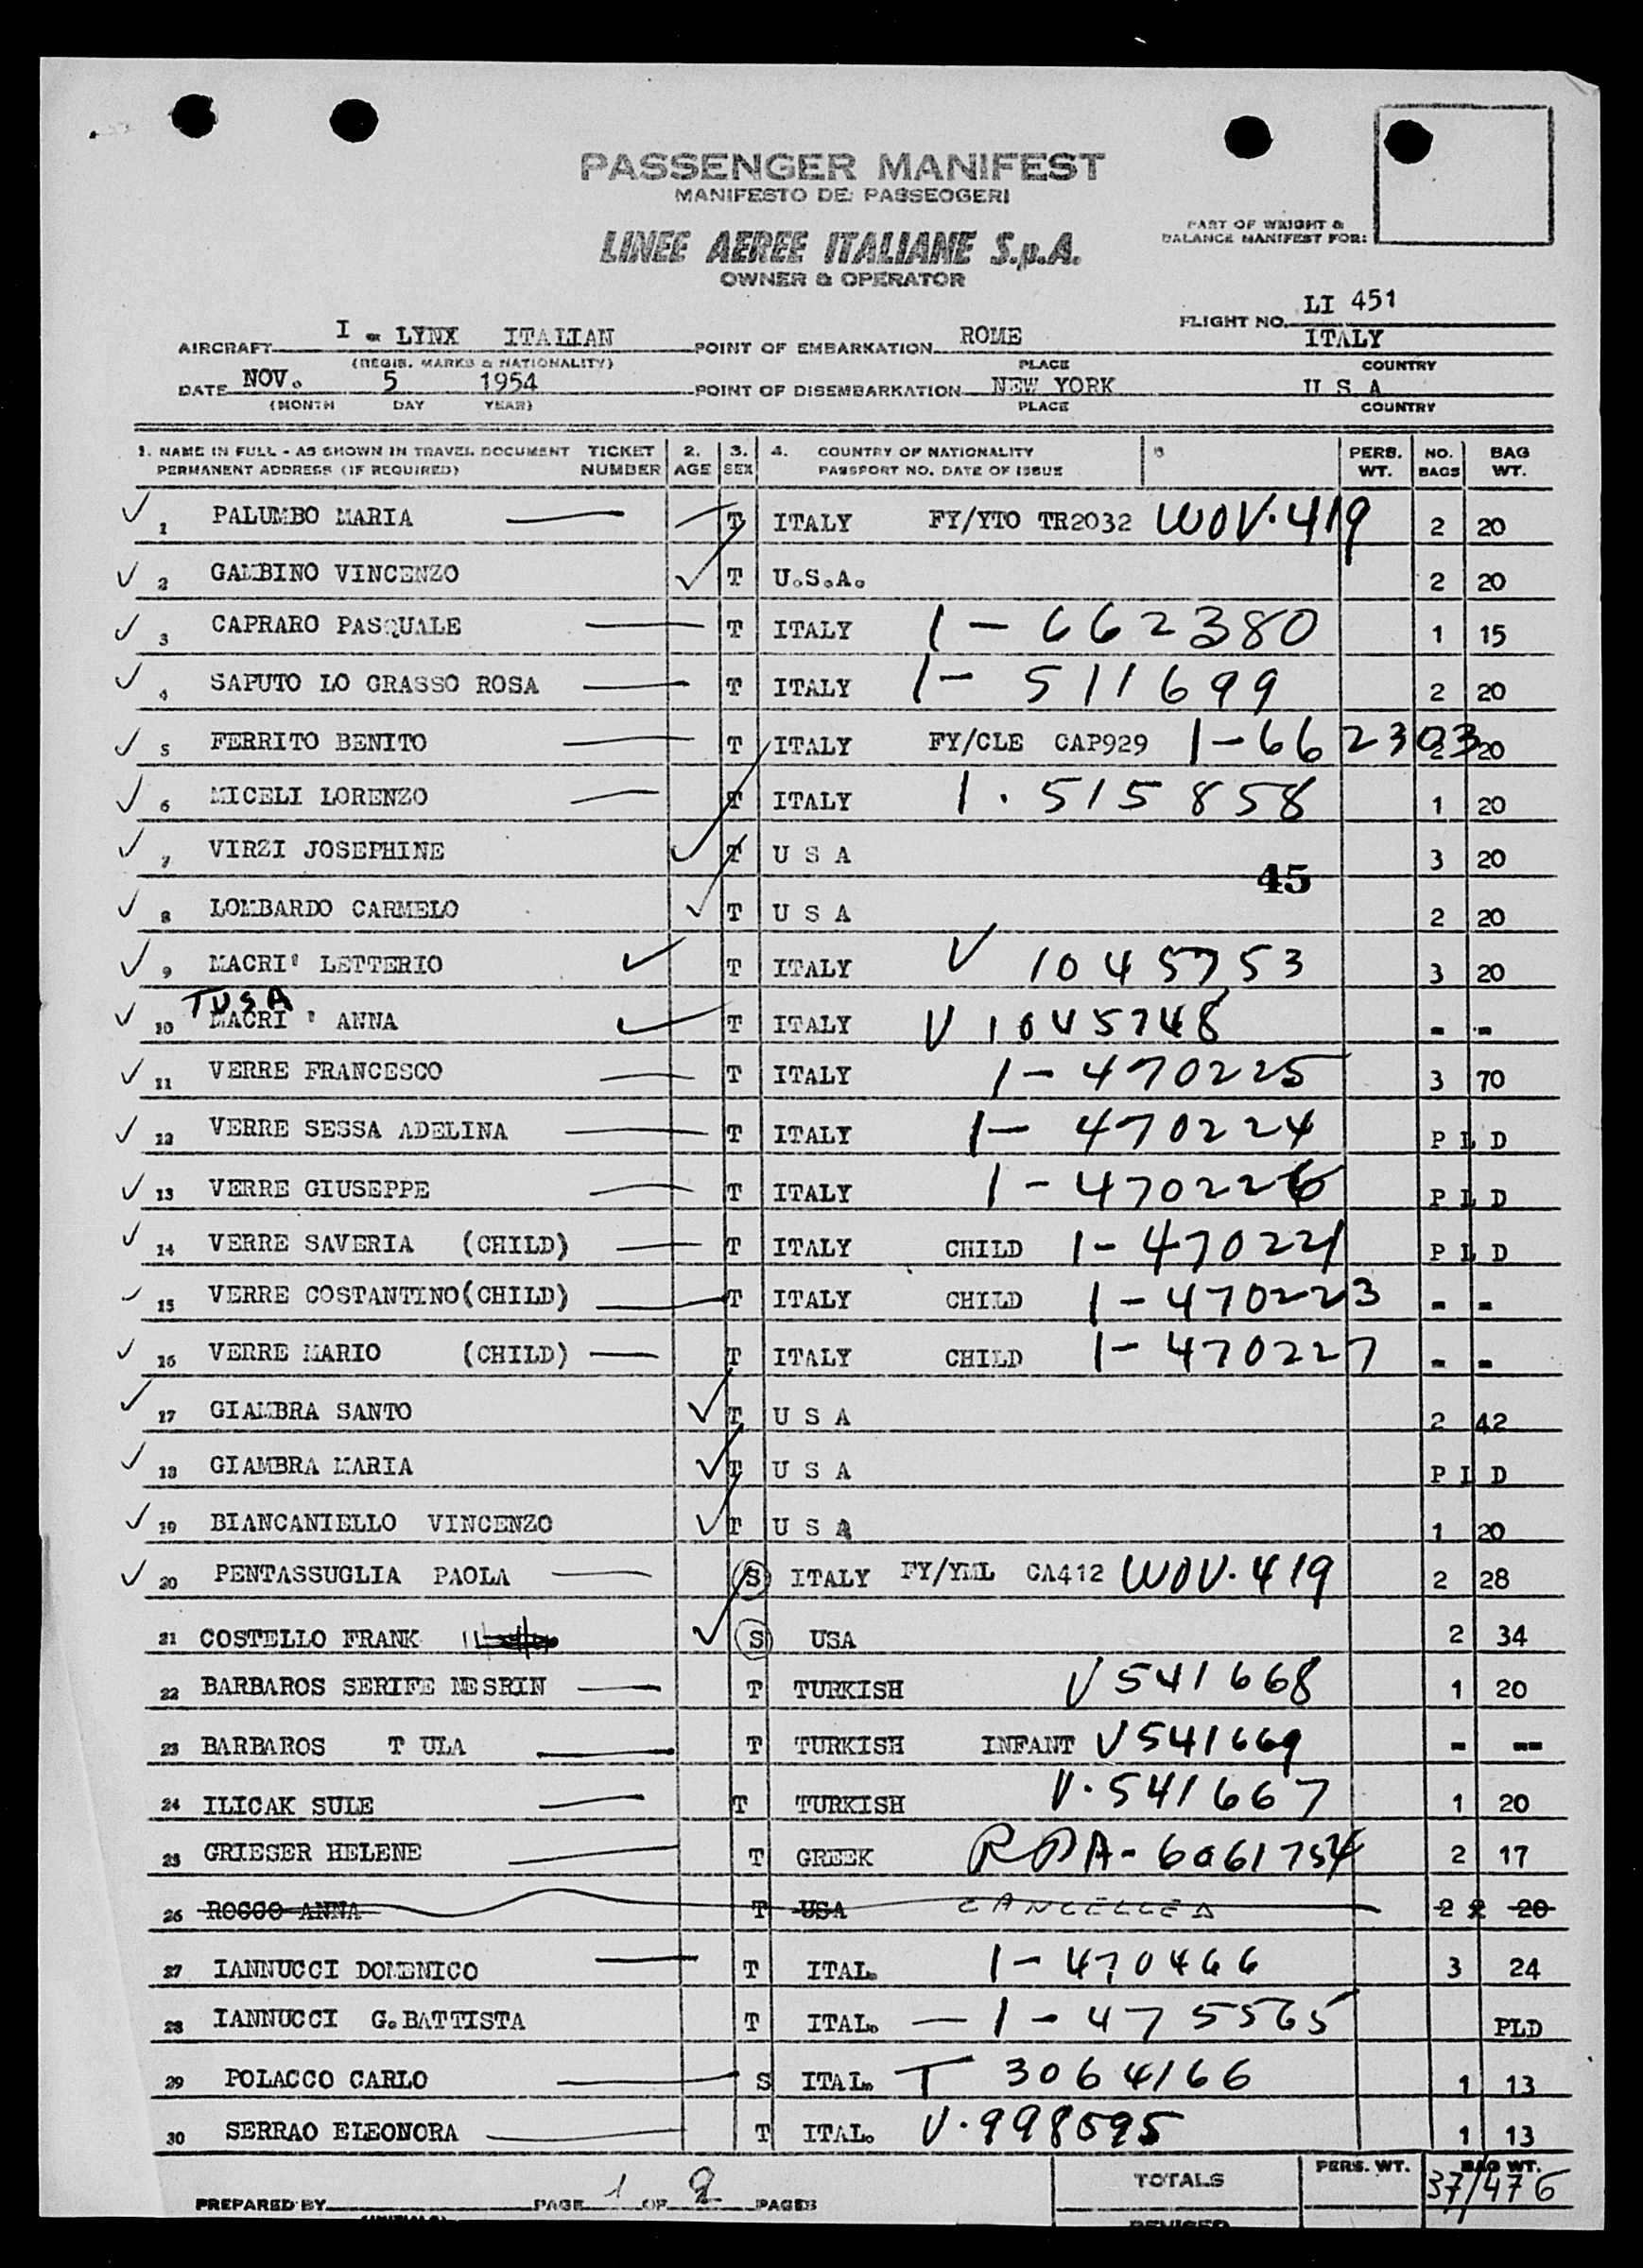 PASSENGER MANIFEST
MANIFESTO DEI PASSEOGERI
LINEE AEREE ITALIANE S.p.A.
OWNER & OPERATOR
PART OF WEIGHT &
BALANCE MANIFEST FOR:
FLIGHT NO. LI 451
AIRCRAFT I - LYNX ITALIAN POINT OF EMBARKATION ROME ITALY
(REGIS. MARKS & NATIONALITY) PLACE COUNTRY
DATE NOV. 5 1954 POINT OF DISEMBARKATION NEW YORK U S A
(MONTH DAY YEAR) PLACE COUNTRY
1. NAME IN FULL - AS SHOWN IN TRAVEL DOCUMENT TICKET 2. 3. 4. COUNTRY OF NATIONALITY 5 PERS. NO. BAG
PERMANENT ADDRESS (IF REQUIRED) NUMBER AGE SEX PASSPORT NO. DATE OF ISSUE WT. BAGS WT.
1 PALUMBO MARIA T ITALY FY/YTO TR2032 WOV.419 2 20
2 GAMBINO VINCENZO T U.S.A. 2 20
3 CAPRARO PASQUALE T ITALY 1-662380 1 15
4 SAPUTO LO GRASSO ROSA T ITALY 1-511699 2 20
5 FERRITO BENITO T ITALY FY/CLE CAP929 1-662303 2 20
6 MICELI LORENZO T ITALY 1.515858 1 20
7 VIRZI JOSEPHINE T U S A 3 20
45
8 LOMBARDO CARMELO T U S A 2 20
9 MACRI' LETTERIO T ITALY V 1045753 3 20
TUSA
10 MACRI ' ANNA T ITALY V 1045748 - -
11 VERRE FRANCESCO T ITALY 1-470225 3 70
12 VERRE SESSA ADELINA T ITALY 1-470224 P L D
13 VERRE GIUSEPPE T ITALY 1-470226 P L D
14 VERRE SAVERIA (CHILD) T ITALY CHILD 1-470221 P L D
15 VERRE COSTANTINO(CHILD) T ITALY CHILD 1-470223 - -
16 VERRE MARIO (CHILD) T ITALY CHILD 1-470227 - -
17 GIAMBRA SANTO T U S A 2 42
18 GIAMBRA MARIA T U S A P L D
19 BIANCANIELLO VINCENZO T U S A 1 20
20 PENTASSUGLIA PAOLA S ITALY FY/YML CA412 WOV.419 2 28
21 COSTELLO FRANK S USA 2 34
22 BARBAROS SERIFE NESRIN T TURKISH V 541668 1 20
23 BARBAROS T ULA T TURKISH INFANT V 541669 - --
24 ILICAK SULE T TURKISH V.541667 1 20
25 GRIESER HELENE T GREEK RPA-6061754 2 17
26 ROCCO ANNA T USA CANCELLED 2 2 20
27 IANNUCCI DOMENICO T ITAL. 1-470466 3 24
28 IANNUCCI G.BATTISTA T ITAL. 1-475565 PLD
29 POLACCO CARLO S ITAL. T 3064166 1 13
30 SERRAO ELEONORA T ITAL. V.998595 1 13
PREPARED BY PAGE 1 OF 2 PAGES TOTALS PERS. WT. BAG WT.
37/476
REVISED